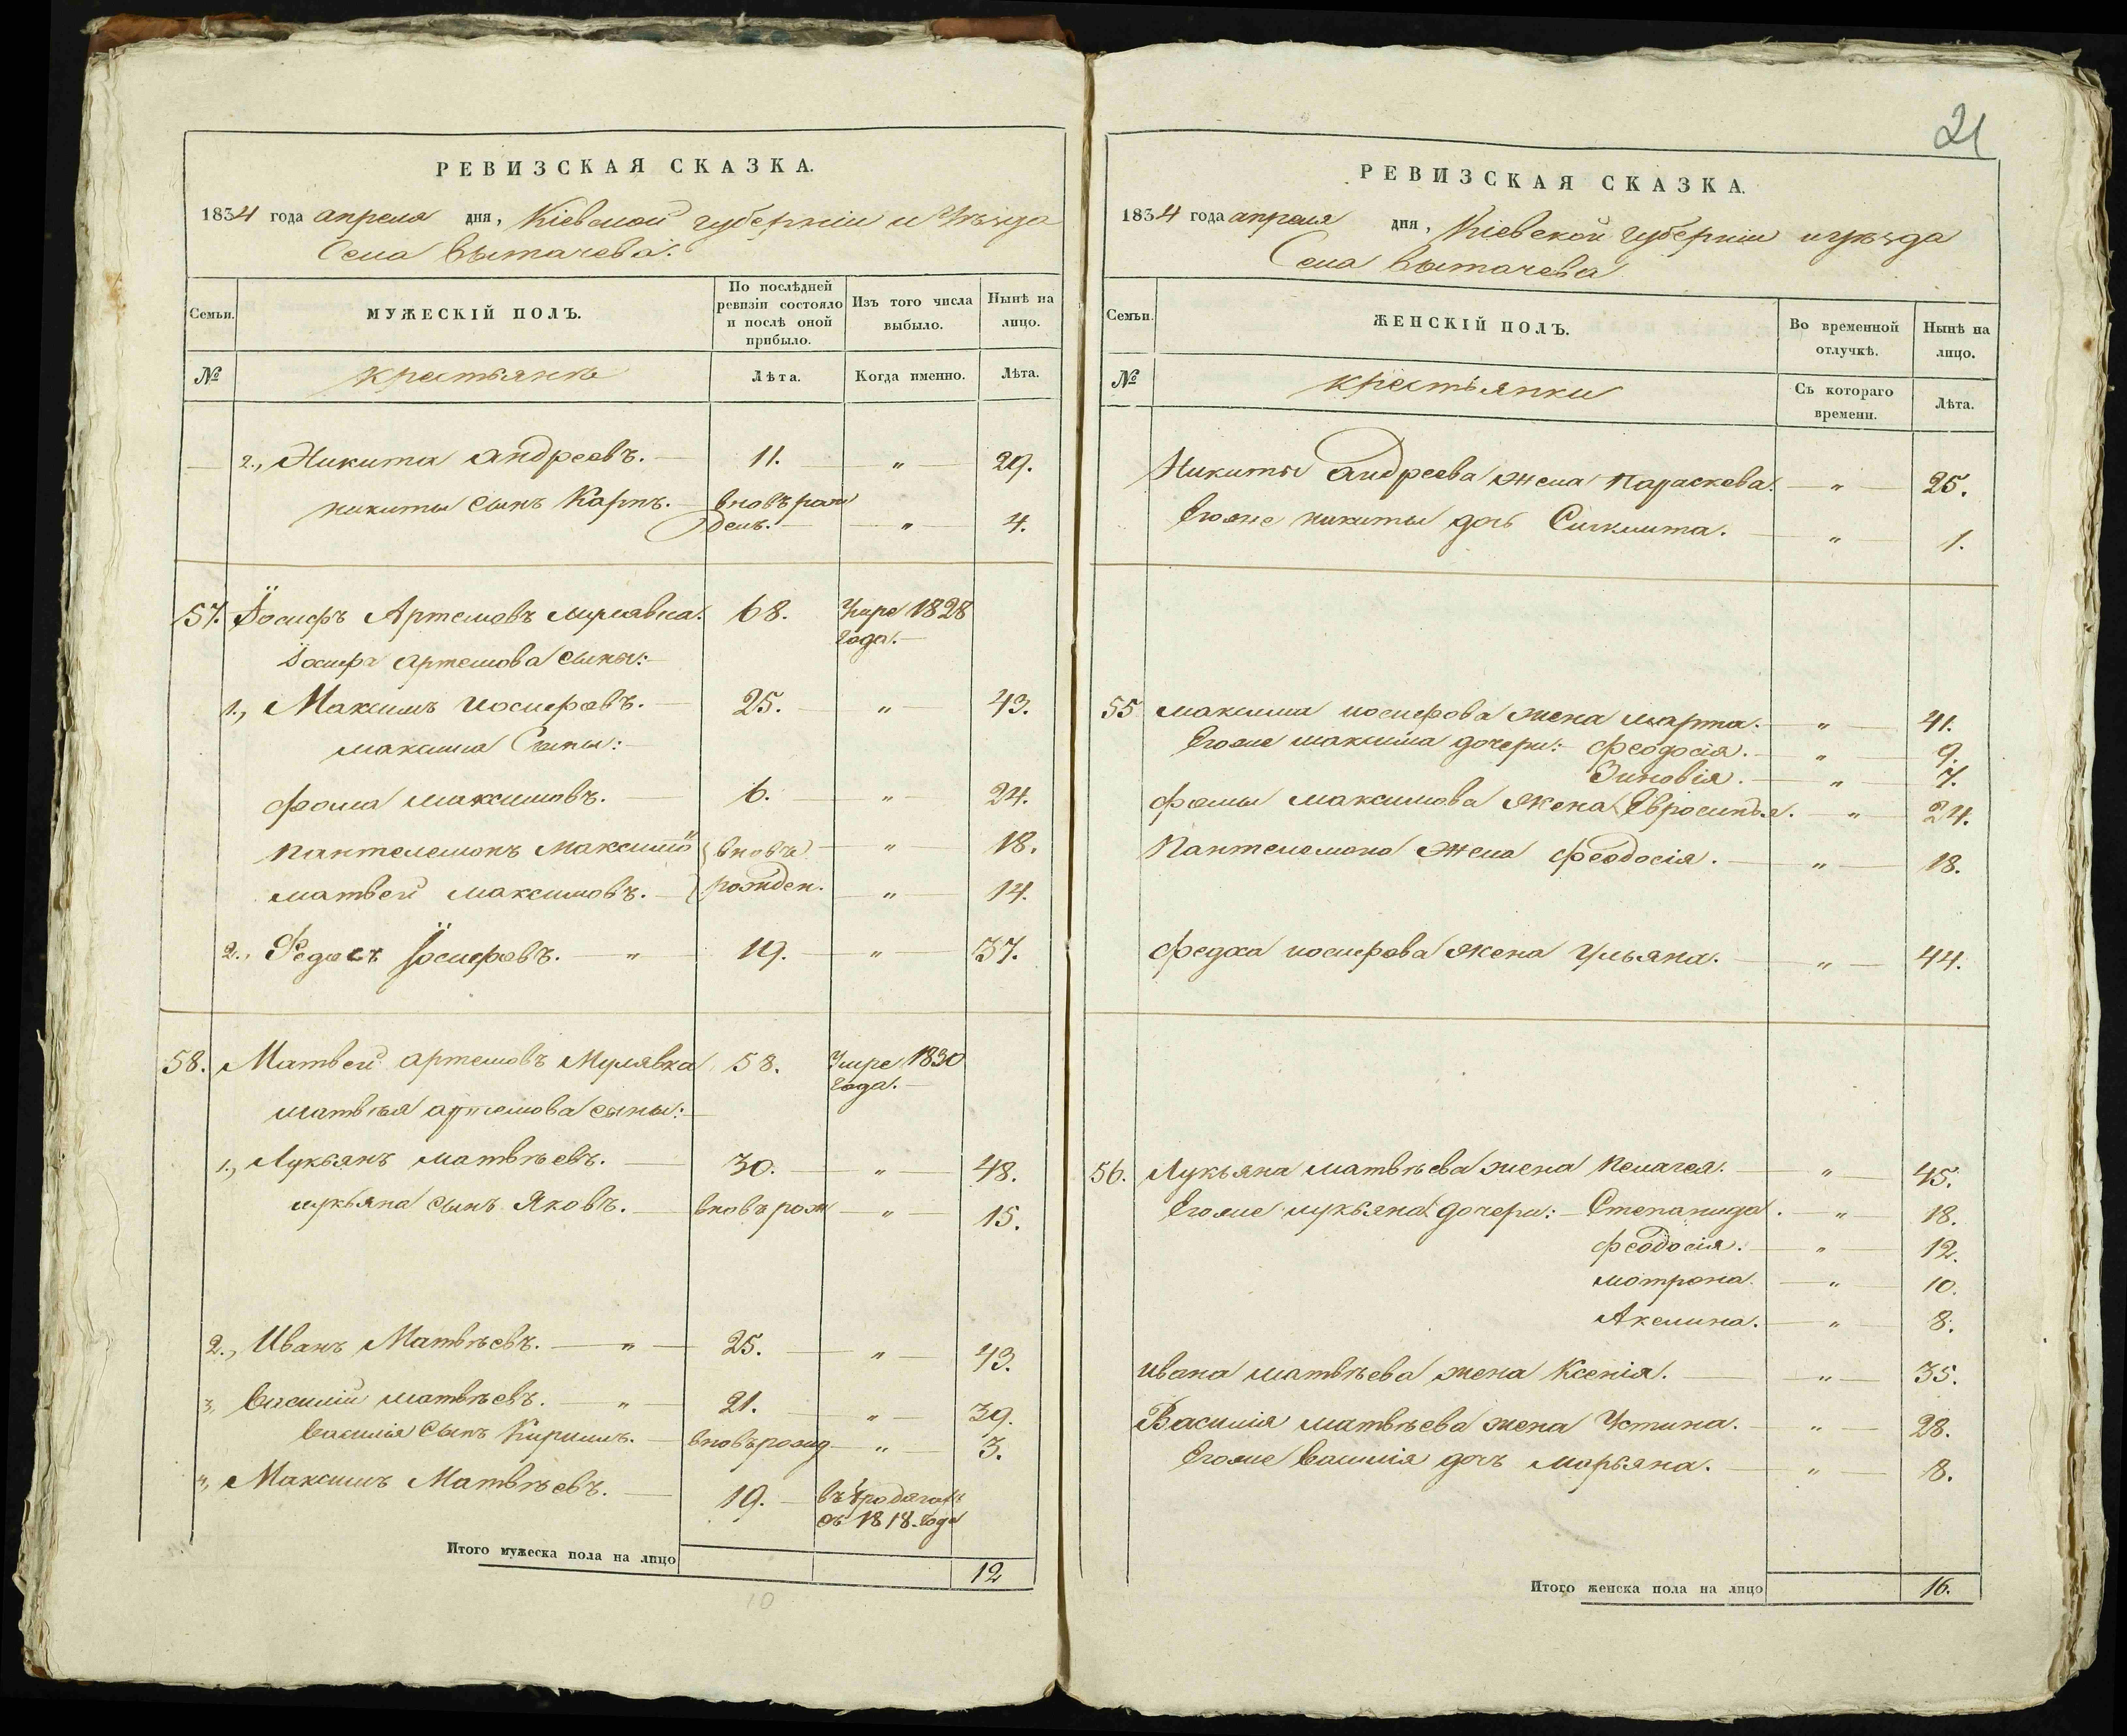 РЕВИЗСКАЯ СКАЗКА.
1834 года апреля дня, Кіевской губерніи и Уѣзда
Села Вытачева.
Семьи.
МУЖЕСКІЙ ПОЛЪ.
По послѣдней ревизіи состояло и послѣ оной прибыло.
Изъ того числа выбыло.
Нынѣ на лицо.
№
Крестьянѣ
Лѣта.
Когда именно.
Лѣта.
2., Никита Андреевъ. 11. " 29.
Никиты сынъ Карпъ. вновь рож
ден. " 4.
57. Іосифъ Артемовъ Мулявка. 68. Умре 1828
года.
Іосифа Артемова сыны:
1., Максимъ Иосифовъ. 25. " 43.
Максима Сыны:
Фома Максимовъ. 6. " 24.
Пантелемонъ Максимо вновь " 18.
Матвей Максимовъ. рожден. " 14.
2., Федось Іосифовъ. " 19. " 37.
58. Матвей Артемовъ Мулявка 58. Умре 1830
года.
Матвѣя Артемова сыны:
1., Лукьянъ Матвѣевъ. 30. " 48.
Лукьяна сынъ Яковъ. вновь рож " 15.
2., Иванъ Матвѣевъ. " 25. " 43.
3, Василій Матвѣевъ. " 21. " 39.
Василія Сынъ Кирилъ. вновь рожд " 3.
4, Максимъ Матвѣевъ. 19. въ бродягахъ
съ 1818. года
Итого мужеска пола на лицо 12
10
21
РЕВИЗСКАЯ СКАЗКА.
1834 года апреля дня, Кіевской Губерніи и уѣзда
Села Вытачева
Семьи.
ЖЕНСКІЙ ПОЛЪ.
Во временной отлучкѣ.
Нынѣ на лицо.
№
крестьянки
Съ котораго времени.
Лѣта.
Никиты Андреева жена Параскева. " 25.
Егоже Никиты дочь . " 1.
55 Максима Иосифова жена Марта. " 41.
Егоже Максима дочери: Феодосія. " 9.
Зиновія. " 7.
Фомы Максимова жена Евросинья. " 24.
Пантелемона жена Феодосія. " 18.
Федоса Иосифова жена Ульяна. " 44.
56. Лукьяна Матвѣева жена Пелагея. " 45.
Егоже Лукьяна дочери: Степанида. " 18.
Феодосія. " 12.
Мотрона. " 10.
Акелина. " 8.
Ивана Матвѣева жена Ксенія. " 35.
Василія Матвѣева жена Устина. " 28.
Егоже Василія дочь Марьяна. " 8.
Итого женска пола на лицо 16.